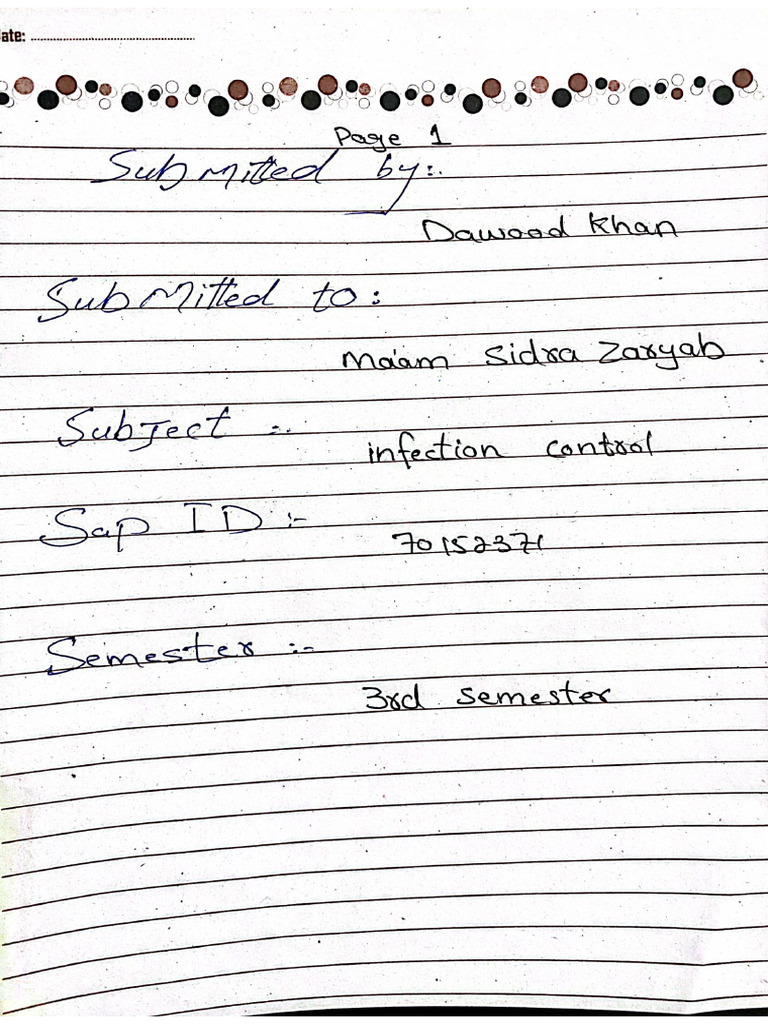 ate:
Page 1
Submitted by:.
Dawood Khan
SubMitted to:
Ma'am Sidra Zaryab
SubJect :-.
infection control
Sap ID :-
70152371
Semester :-
3rd semester